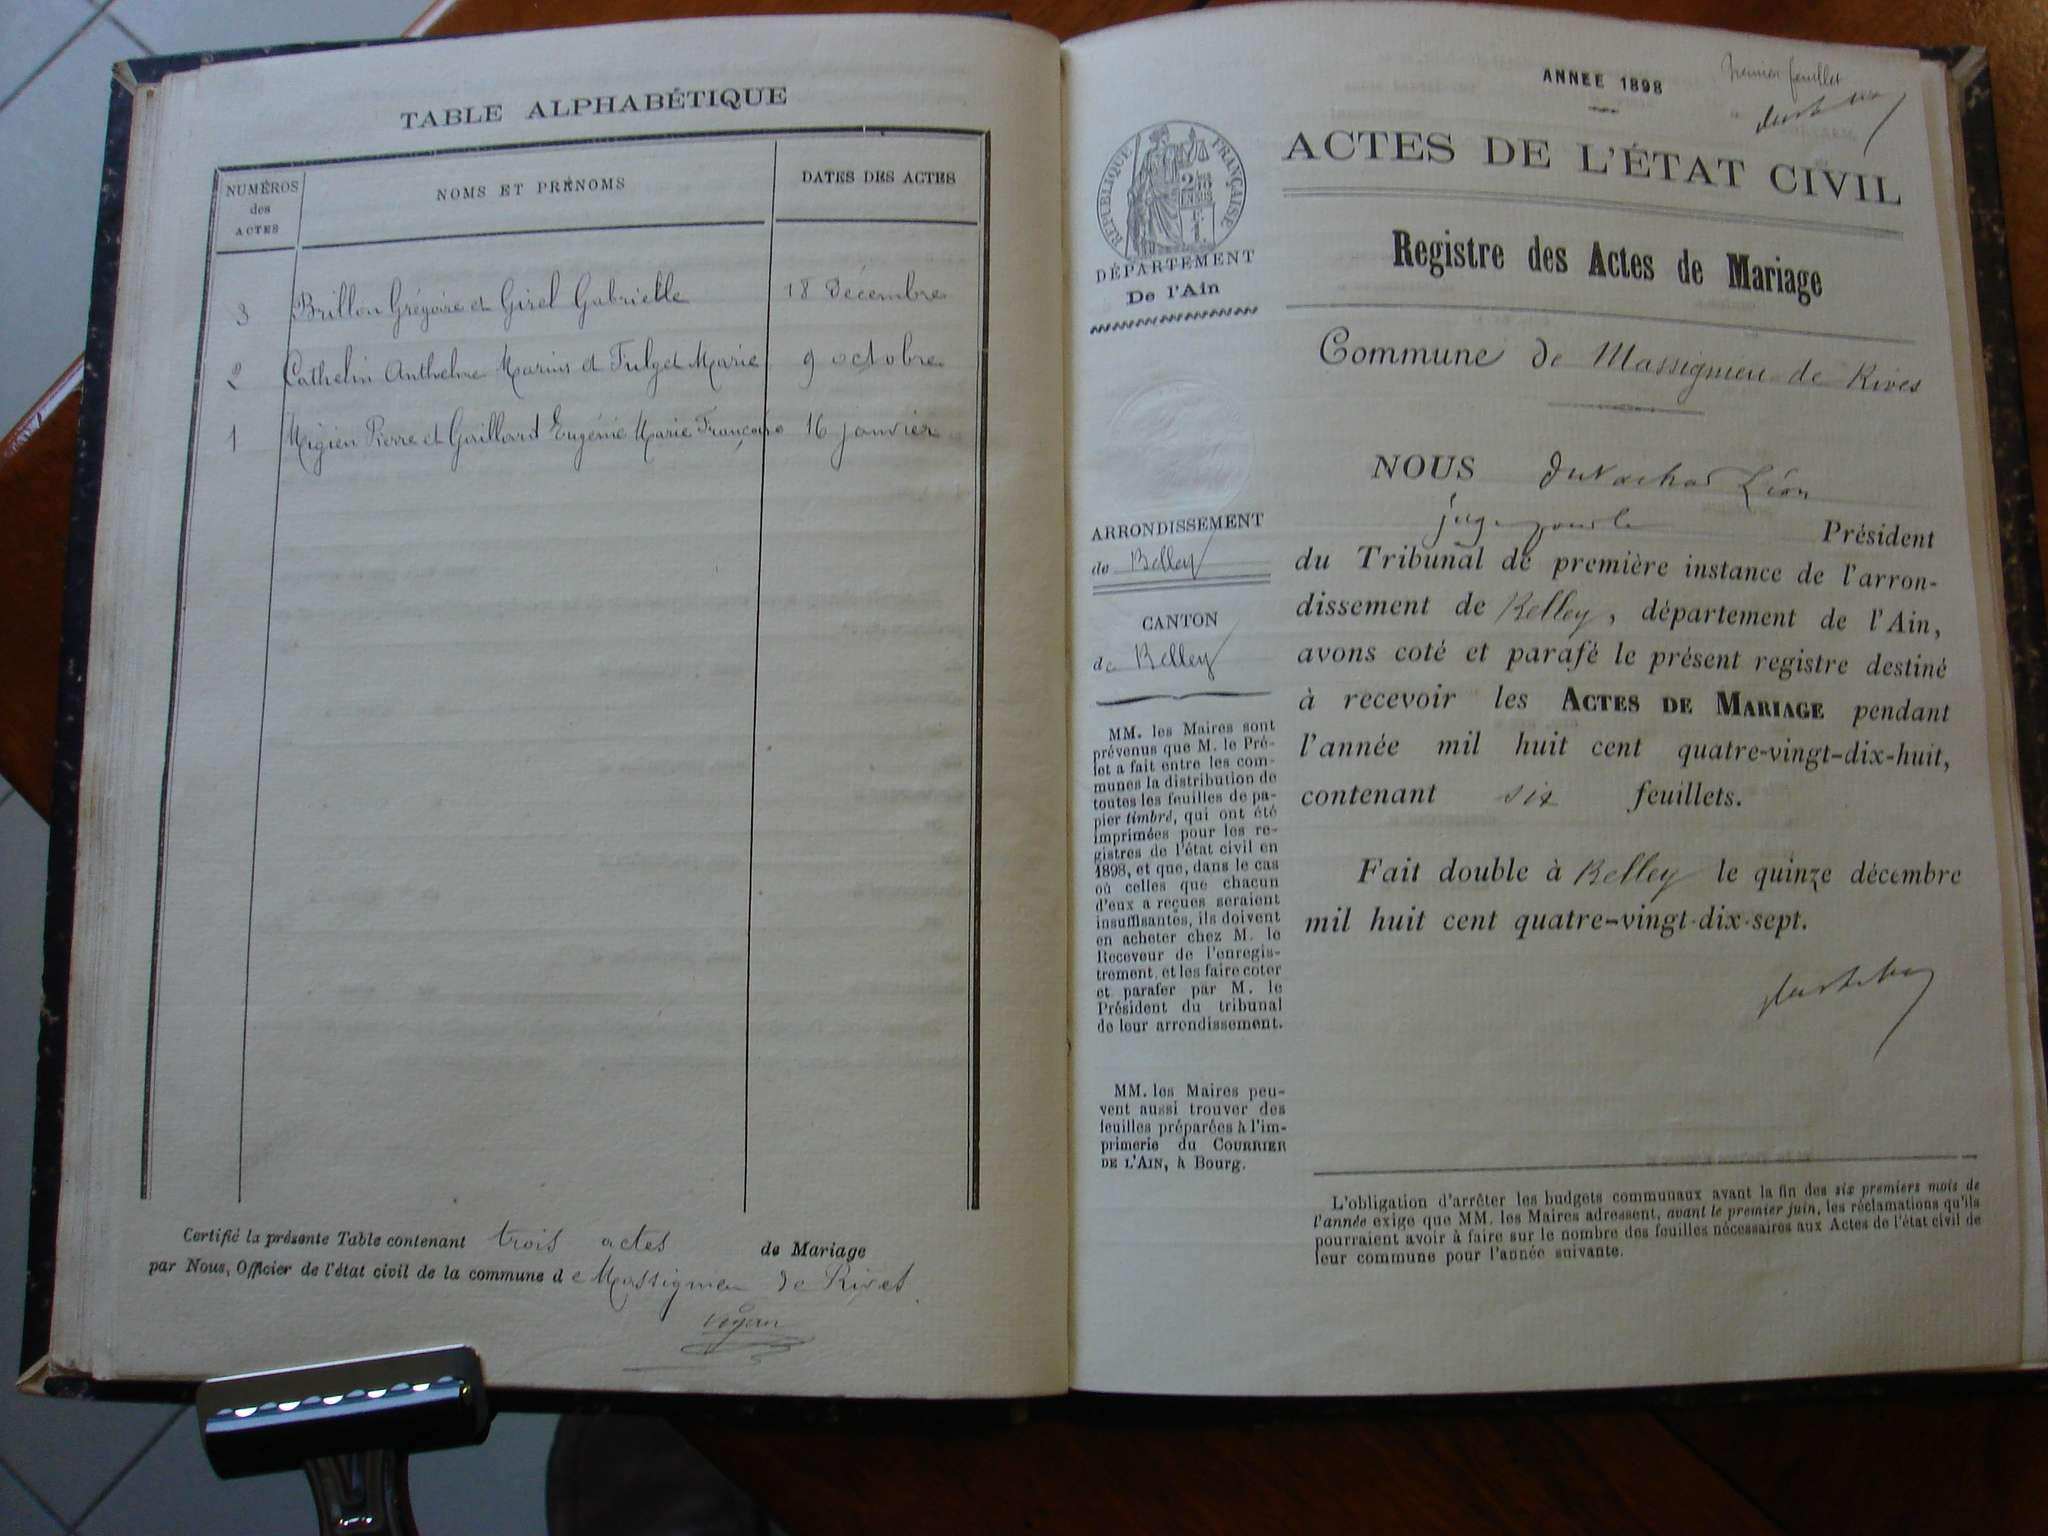 TABLE ALPHABÉTIQUE
NUMÉROS des ACTES
NOMS ET PRÉNOMS
DATES DES ACTES
3 Brillon Grégoire et Girel Gabrielle 18 décembre
2 Cathelin Anthelme Marius et Fulget Marie 9 octobre
1 Migien Pierre et Gaillard Eugénie Marie Françoise 16 janvier
Certifié la présente Table contenant trois actes de Mariage
par Nous, Officier de l'état civil de la commune de Massignieu de Rives
ANNÉE 1898
Premier feuillet
ACTES DE L'ÉTAT CIVIL
RÉPUBLIQUE FRANÇAISE
DÉPARTEMENT
De l'Ain
Registre des Actes de Mariage
Commune de Massignieu de Rives
ARRONDISSEMENT
de Belley
CANTON
de Belley
MM. les Maires sont
prévenus que M. le Pré-
fet a fait entre les com-
munes la distribution de
toutes les feuilles de pa-
pier timbré, qui ont été
imprimées pour les re-
gistres de l'état civil en
1898, et que, dans le cas
où celles que chacun
d'eux a reçues seraient
insuffisantes, ils doivent
en acheter chez M. le
Receveur de l'enregis-
trement, et les faire coter
et parafer par M. le
Président du tribunal
de leur arrondissement.
MM. les Maires peu-
vent aussi trouver des
feuilles préparées à l'im-
primerie du COURRIER
DE L'AIN, à Bourg.
NOUS Léon
Président
du Tribunal de première instance de l'arron-
dissement de Belley, département de l'Ain,
avons coté et parafé le présent registre destiné
à recevoir les ACTES DE MARIAGE pendant
l'année mil huit cent quatre-vingt-dix-huit,
contenant six feuillets.
Fait double à Belley le quinze décembre
mil huit cent quatre-vingt-dix-sept.
L'obligation d'arrêter les budgets communaux avant la fin des six premiers mois de
l'année exige que MM. les Maires adressent, avant le premier juin, les réclamations qu'ils
pourraient avoir à faire sur le nombre des feuilles nécessaires aux Actes de l'état civil de
leur commune pour l'année suivante.